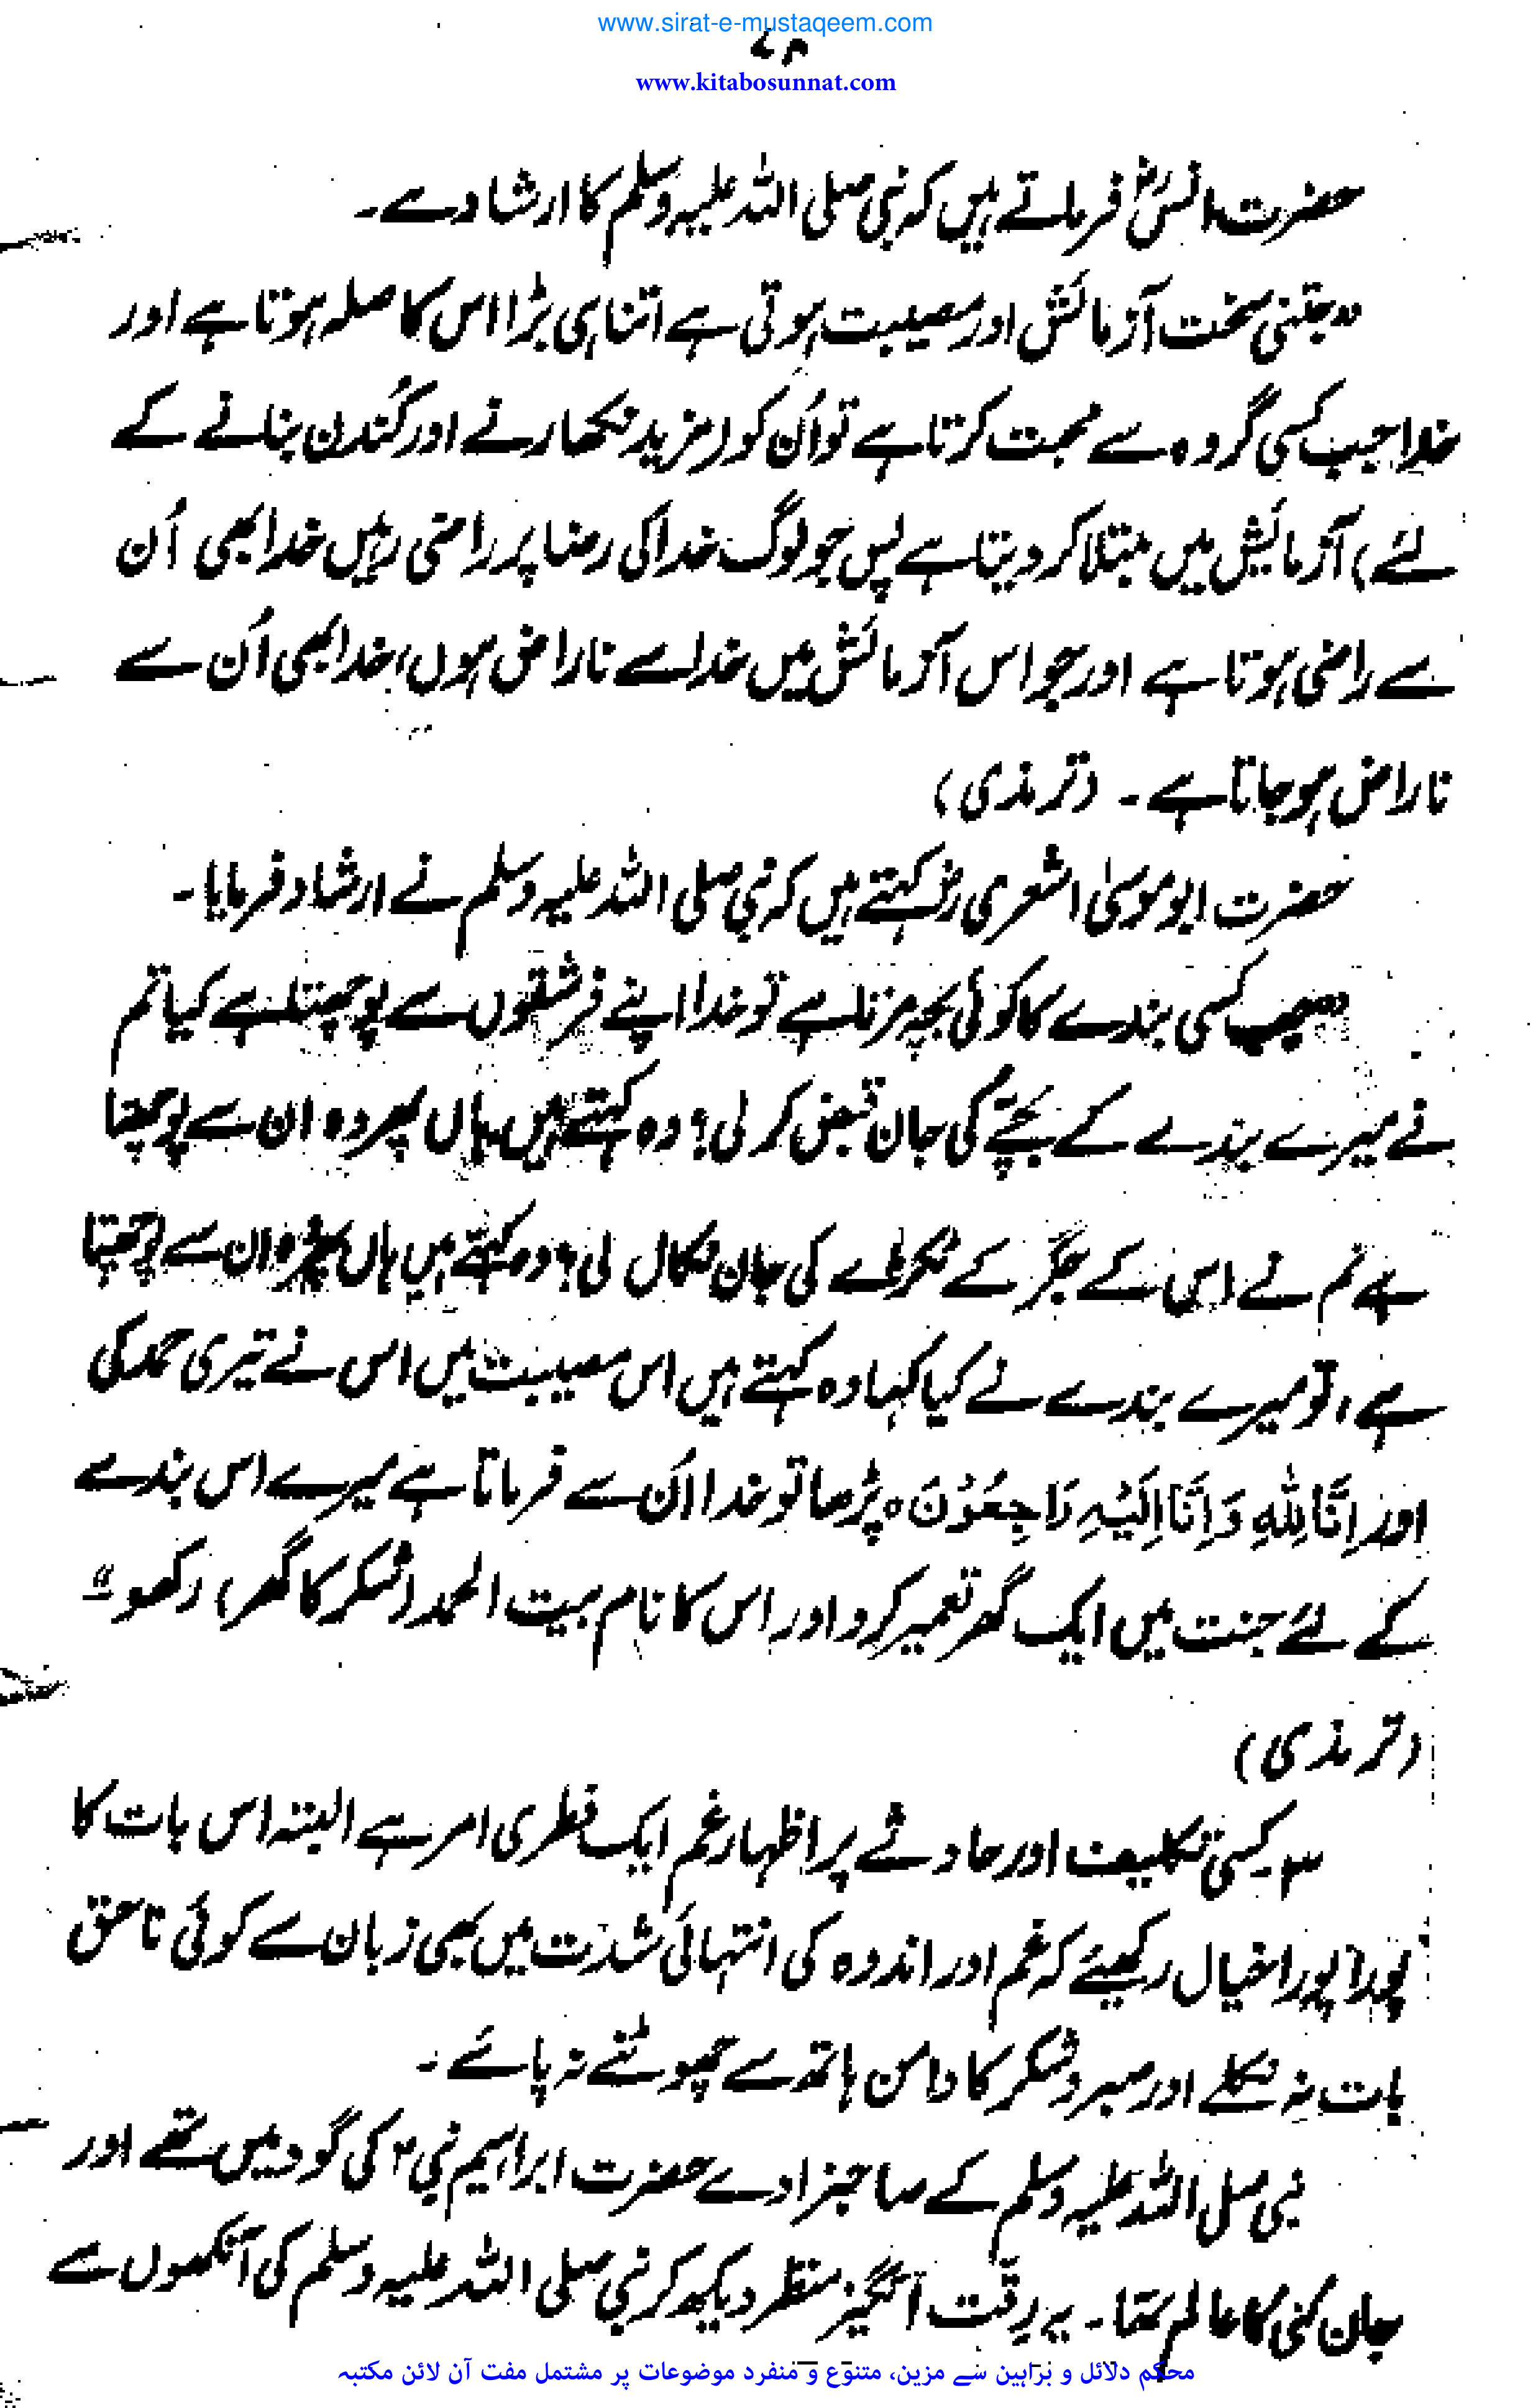 www.sirat-e-mustaqeem.com
۷۸
www.kitabosunnat.com
حضرت انسؓ فرماتے ہیں کہ نبی صلی اللہ علیہ وسلم کا ارشاد ہے۔
”جتنی سخت آزمائش اور مصیبت ہوتی ہے اتنا ہی بڑا اس کا صلہ ہوتا ہے اور
خدا جب کسی گروہ سے محبت کرتا ہے تو اُن کو (مزید نکھارنے اور کُندن بنانے کے
لئے) آزمائش میں مبتلا کر دیتا ہے پس جو لوگ خدا کی رضا پر راضی رہیں خدا بھی اُن
سے راضی ہوتا ہے اور جو اس آزمائش میں خدا سے ناراض ہوں، خدا بھی اُن سے
ناراض ہو جاتا ہے۔ (ترمذی)
حضرت ابو موسیٰ اشعری رضؓ کہتے ہیں کہ نبی صلی اللہ علیہ وسلم نے ارشاد فرمایا۔
”جب کسی بندے کا کوئی بچہ مرتا ہے تو خدا اپنے فرشتوں سے پوچھتا ہے کیا تم
نے میرے بندے کے بچّے کی جان قبض کر لی؟ وہ کہتے ہیں ہاں پھر وہ ان سے پوچھتا
ہے تم نے اس کے جگر کے ٹکڑے کی جان نکال لی؟ وہ کہتے ہیں ہاں پھر وہ ان سے پوچھتا
ہے، تو میرے بندے نے کیا کہا وہ کہتے ہیں اس مصیبت میں اس نے تیری حمد کی
اور اِنَّا لِلّٰہِ وَ اِنَّا اِلَیْہِ رَاجِعُوْنَ ہ پڑھا تو خدا اُن سے فرماتا ہے میرے اس بندے
کے لئے جنت میں ایک گھر تعمیر کرو اور اس کا نام بیت الحمد (شکر کا گھر) رکھو“
(ترمذی)
۳۔ کسی تکلیف اور حادثے پر اظہار غم ایک فطری امر ہے البتہ اس بات کا
پورا پورا خیال رکھیئے کہ غم اور اندوہ کی انتہائی شدّت میں بھی زبان سے کوئی ناحق
بات نہ نکلے اور صبر و شکر کا دامن ہاتھ سے چھوٹنے نہ پائے۔
نبی صلی اللہ علیہ وسلم کے صاحبزادے حضرت ابراہیم نبیؐ کی گود میں تھے اور
جان کنی کا عالم تھا۔ یہ رقّت انگیز منظر دیکھ کر نبی صلی اللہ علیہ وسلم کی آنکھوں سے
محکم دلائل و براہین سے مزین، متنوع و منفرد موضوعات پر مشتمل مفت آن لائن مکتبہ